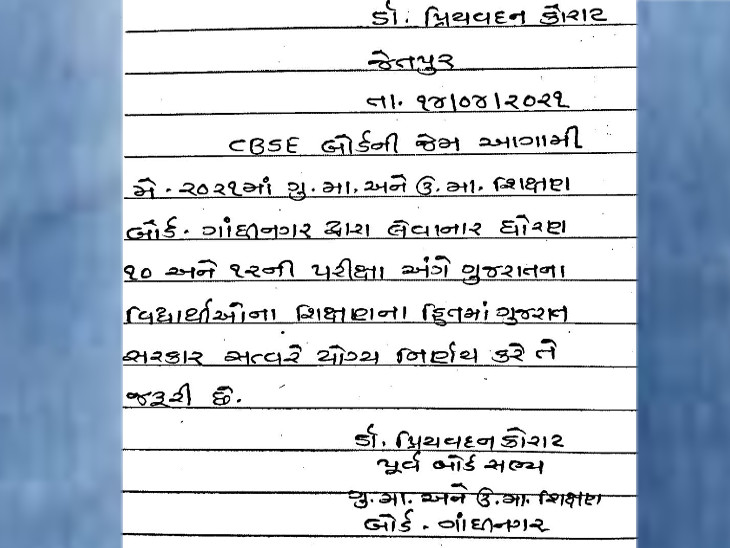 ડૉ. પ્રિયવદન કોરાટ
જેતપુર
તા. ૧૪/૦૪/૨૦૨૧
CBSE બોર્ડની જેમ આગામી
મે. ૨૦૨૧માં ગુ. મા. અને ઉ. મા. શિક્ષણ
બોર્ડ. ગાંધીનગર દ્વારા લેવાનાર ધોરણ
૧૦ અને ૧૨ની પરીક્ષા અંગે ગુજરાતના
વિદ્યાર્થીઓના શિક્ષણના હિતમાં ગુજરાત
સરકાર સત્વરે યોગ્ય નિર્ણય કરે તે
જરૂરી છે.
ડૉ. પ્રિયવદન કોરાટ
પૂર્વ બોર્ડ સભ્ય
ગુ. મા. અને ઉ. મા. શિક્ષણ
બોર્ડ. ગાંધીનગર